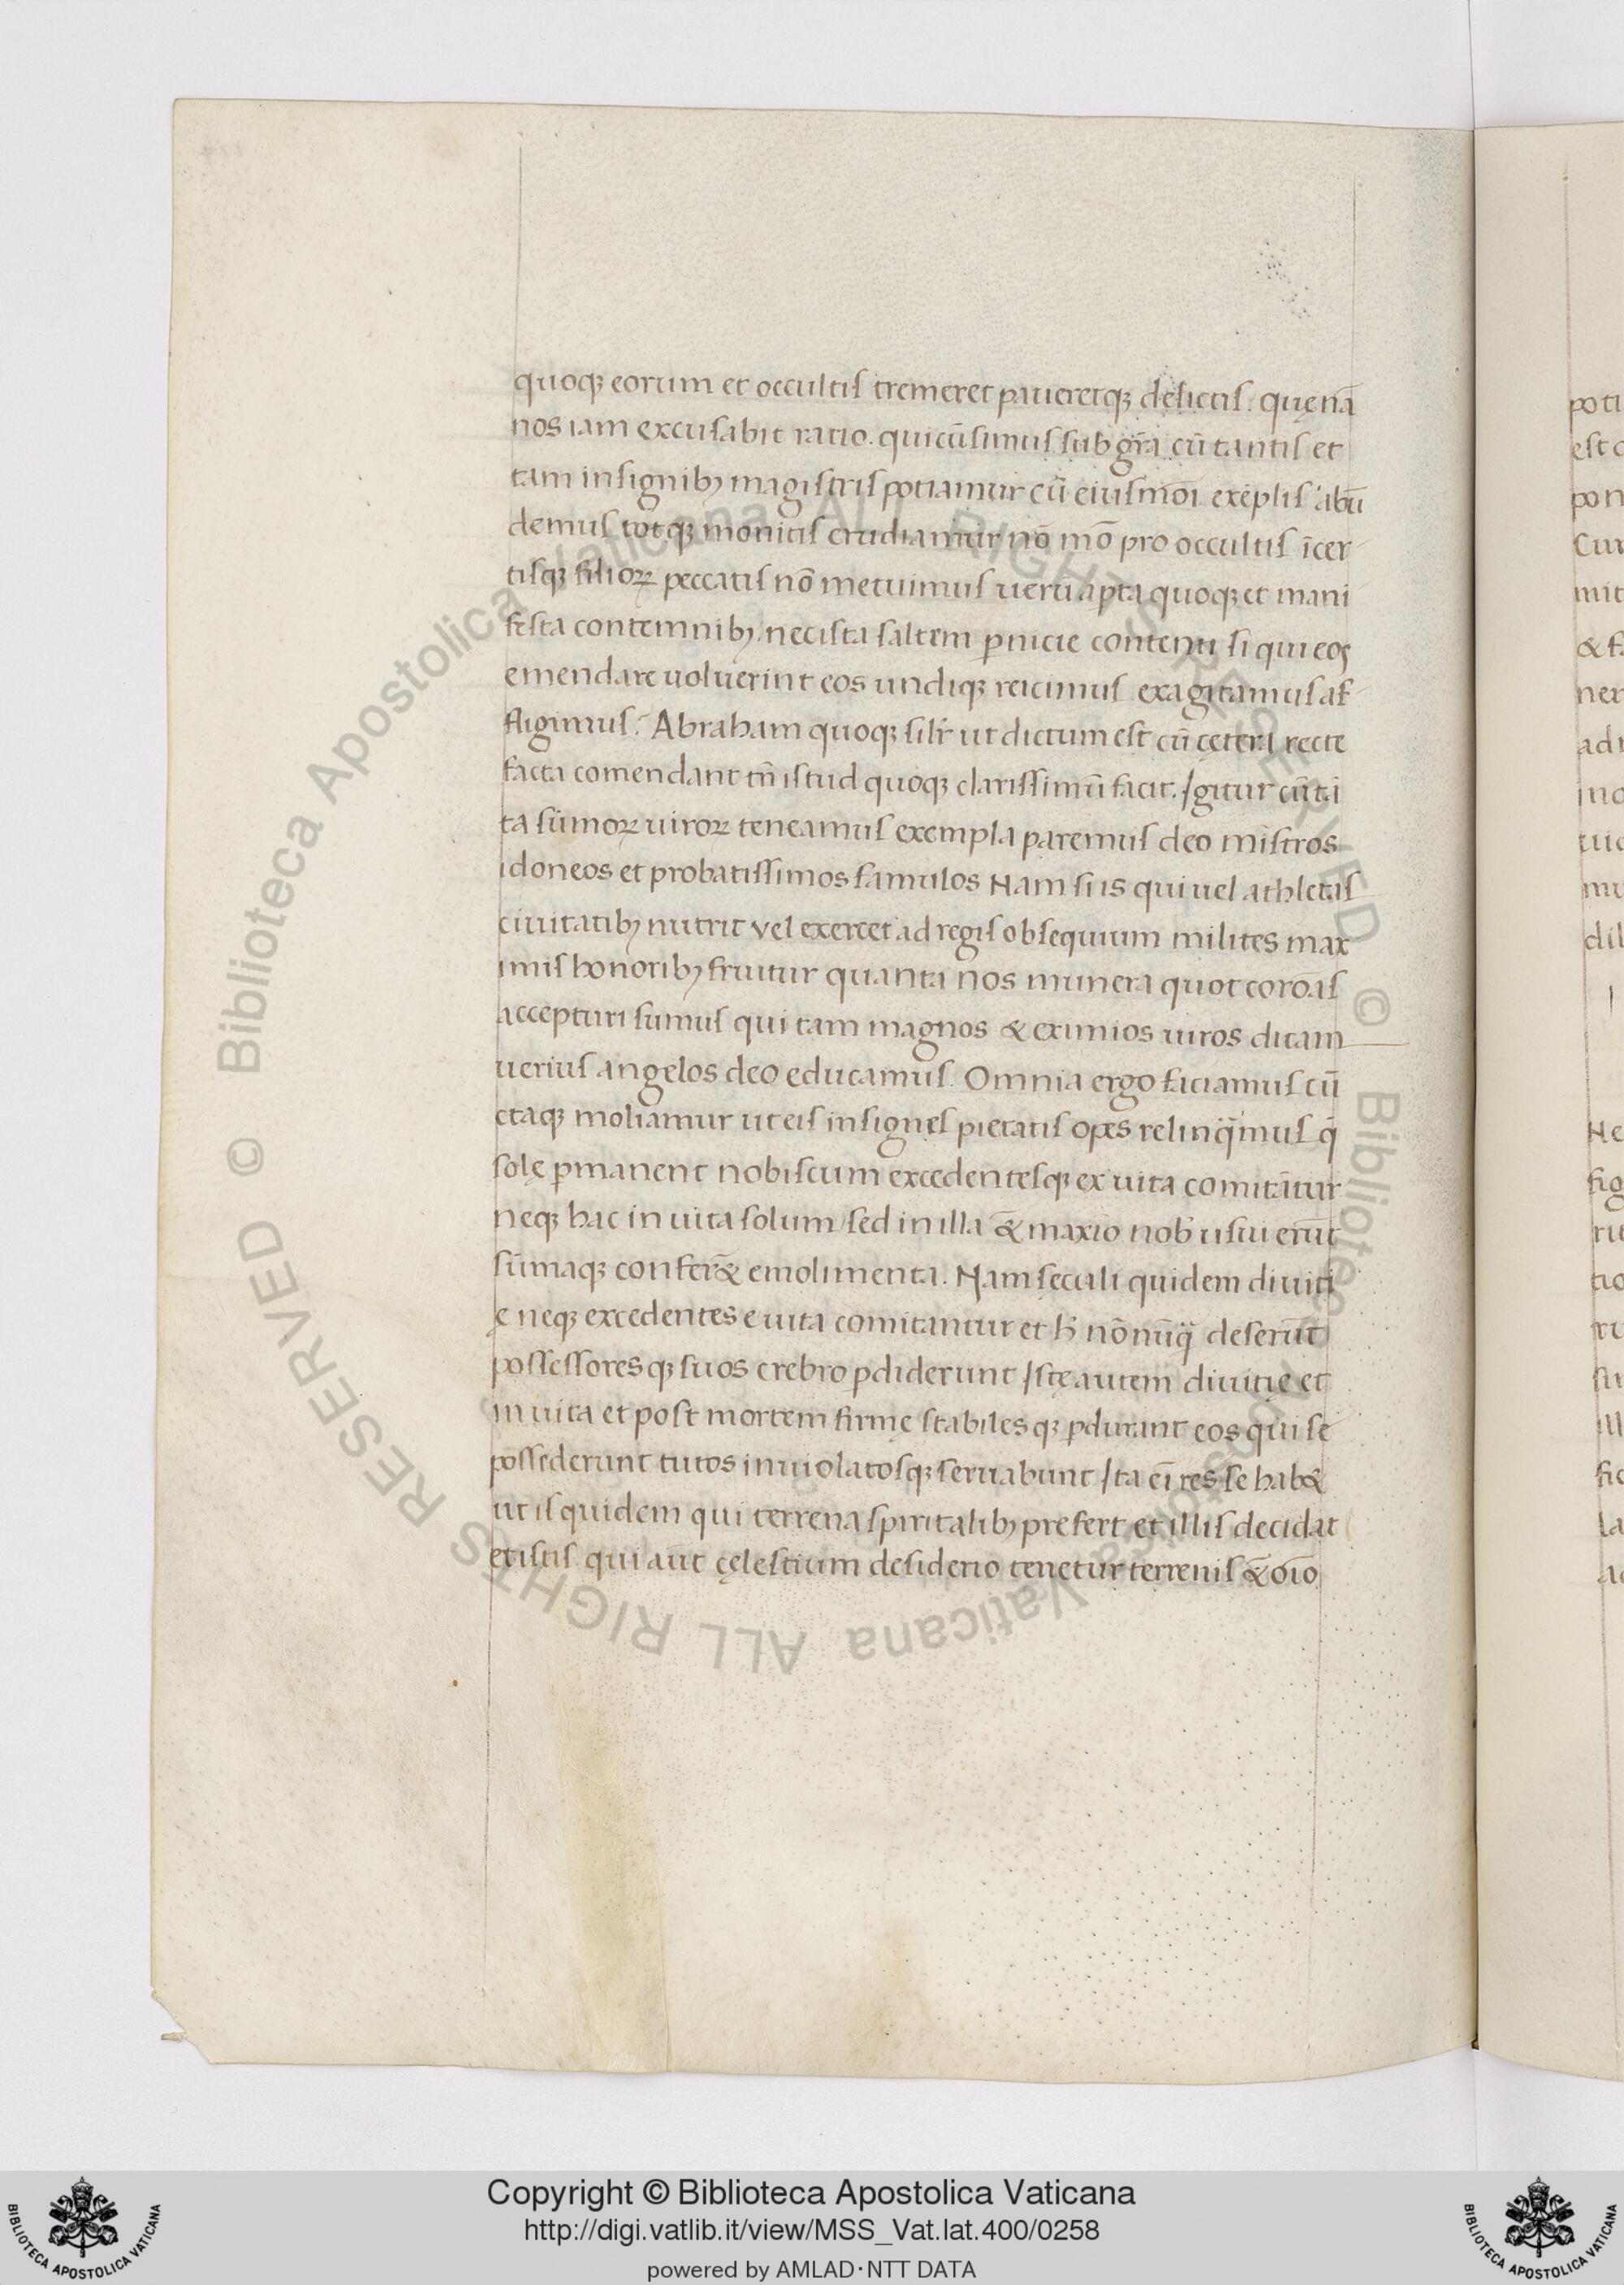 quoqꝫ eorum et occultis tremeret paueretqꝫ delictis. quęnā
nos iam excusabit ratio. qui cū simus sub gr̄a cū tantis et
tam insignibꝫ magistris potiamur cū eiusmōi exēplis abū
demus totqꝫ monitis erudiamur nō mō pro occultis īcer
tisqꝫ filioꝝ peccatis nō metuimus uerū apta quoqꝫ et mani
festa contemnibꝫ nec ista saltem ꝑnicie contenti si qui eos
emendare uoluerint eos undiqꝫ reicimus exagitamus af
fligimus. Abraham quoqꝫ silr̄ ut dictum est cū cęteri recte
facta comendant tn̄ istud quoqꝫ clarissimū facit. Igitur cū tā
ta sūmoꝝ uiroꝝ teneamus exempla paremus deo mīstros
idoneos et probatissimos famulos Nam si is qui uel athletas
ciuitatibꝫ nutrit vel exercet ad regis obsequium milites max
imis honoribꝫ fruitur quanta nos munera quot coronas
accepturi sumus qui tam magnos & eximios uiros dicam
uerius angelos deo educamus. Omnia ergo faciamus cū
ctaqꝫ moliamur ut eis insignes pietatis opes relinq̄mus q̄
solę ꝑmanent nobiscum excedentesqꝫ ex uita comitātur
neqꝫ hac in uita solum sed in illa &̄ maxīo nob̄ usui erūt
sūmaqꝫ confer&̄ emolimenta. Nam seculi quidem diuiti
ę neqꝫ excedentes e uita comitantur et h̄ nōnūq̄ deserūt
possessoresqꝫ suos crebro ꝑdiderunt Istę autem diuitię et
in uita et post mortem firmę stabilesqꝫ ꝑdurant eos qui se
possederunt tutos inuiolatosqꝫ seruabunt Ita eī res se hab&
ut is quidem qui terrena spiritalibꝫ prefert et illis decidat
et istis qui aut cęlestium desiderio tenetur terrenis &̄ oīo
poti
est c
pon
Cur
mit
& fa
ner
adi
ino
mu
dil
He
fig
rit
tio
ill
fic
la
Copyright © Biblioteca Apostolica Vaticana
http://digi.vatlib.it/view/MSS_Vat.lat.400/0258
powered by AMLAD·NTT DATA
BIBLIOTECA APOSTOLICA VATICANA
BIBLIOTECA APOSTOLICA VATICANA
© Biblioteca Apostolica Vaticana ALL RIGHTS RESERVED © Biblioteca Apostolica Vaticana ALL RIGHTS RESERVED